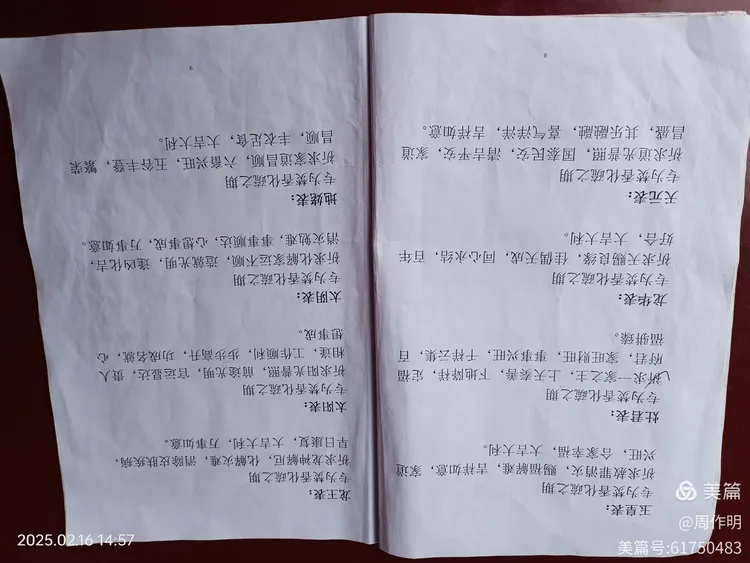 玉皇表:
专为焚香化疏之期
祈求赦罪消灾,赐福解难,吉祥如意,家道
兴旺,合家幸福,大吉大利。
灶君表:
专为焚香化疏之期
祈求一家之主,上天奏善,下地降祥,定福
府君,家旺财旺,事事兴旺,千祥云集,百
福骈臻。
龙华表:
专为焚香化疏之期
祈求天赐良缘,佳偶天成,同心永结,百年
好合,大吉大利。
天元表:
专为焚香化疏之期
祈求道光普照,国泰民安,清吉平安,家道
昌盛,其乐融融,喜气洋洋,吉祥如意。
8
龙王表:
专为焚香化疏之期
祈求龙神解厄,化解灾难,消除皮肤疾病,
早日康复,大吉大利,万事如意。
太阳表:
专为焚香化疏之期
祈求阳光普照,前途光明,官运显达,贵人
相逢,工作顺利,步步高升,功成名就,心
想事成。
太阴表:
专为焚香化疏之期
祈求化解家运不顺,造就光明,逢凶化吉,
消灾免难,事事顺达,心想事成,万事如意。
地姥表:
专为焚香化疏之期
祈求家道昌顺,六畜兴旺,五谷丰登,繁荣
昌顺,丰衣足食,大吉大利。
9
2025.02.16 14:57
美篇
@周作明
美篇号:61750483